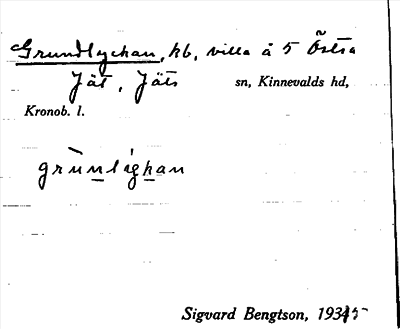 Grundlyckan, hb, villa å 5 Östra
Jät, Jäts sn, Kinnevalds hd,
Kronob. l.
grùnlýkan
Sigvard Bengtson, 1935